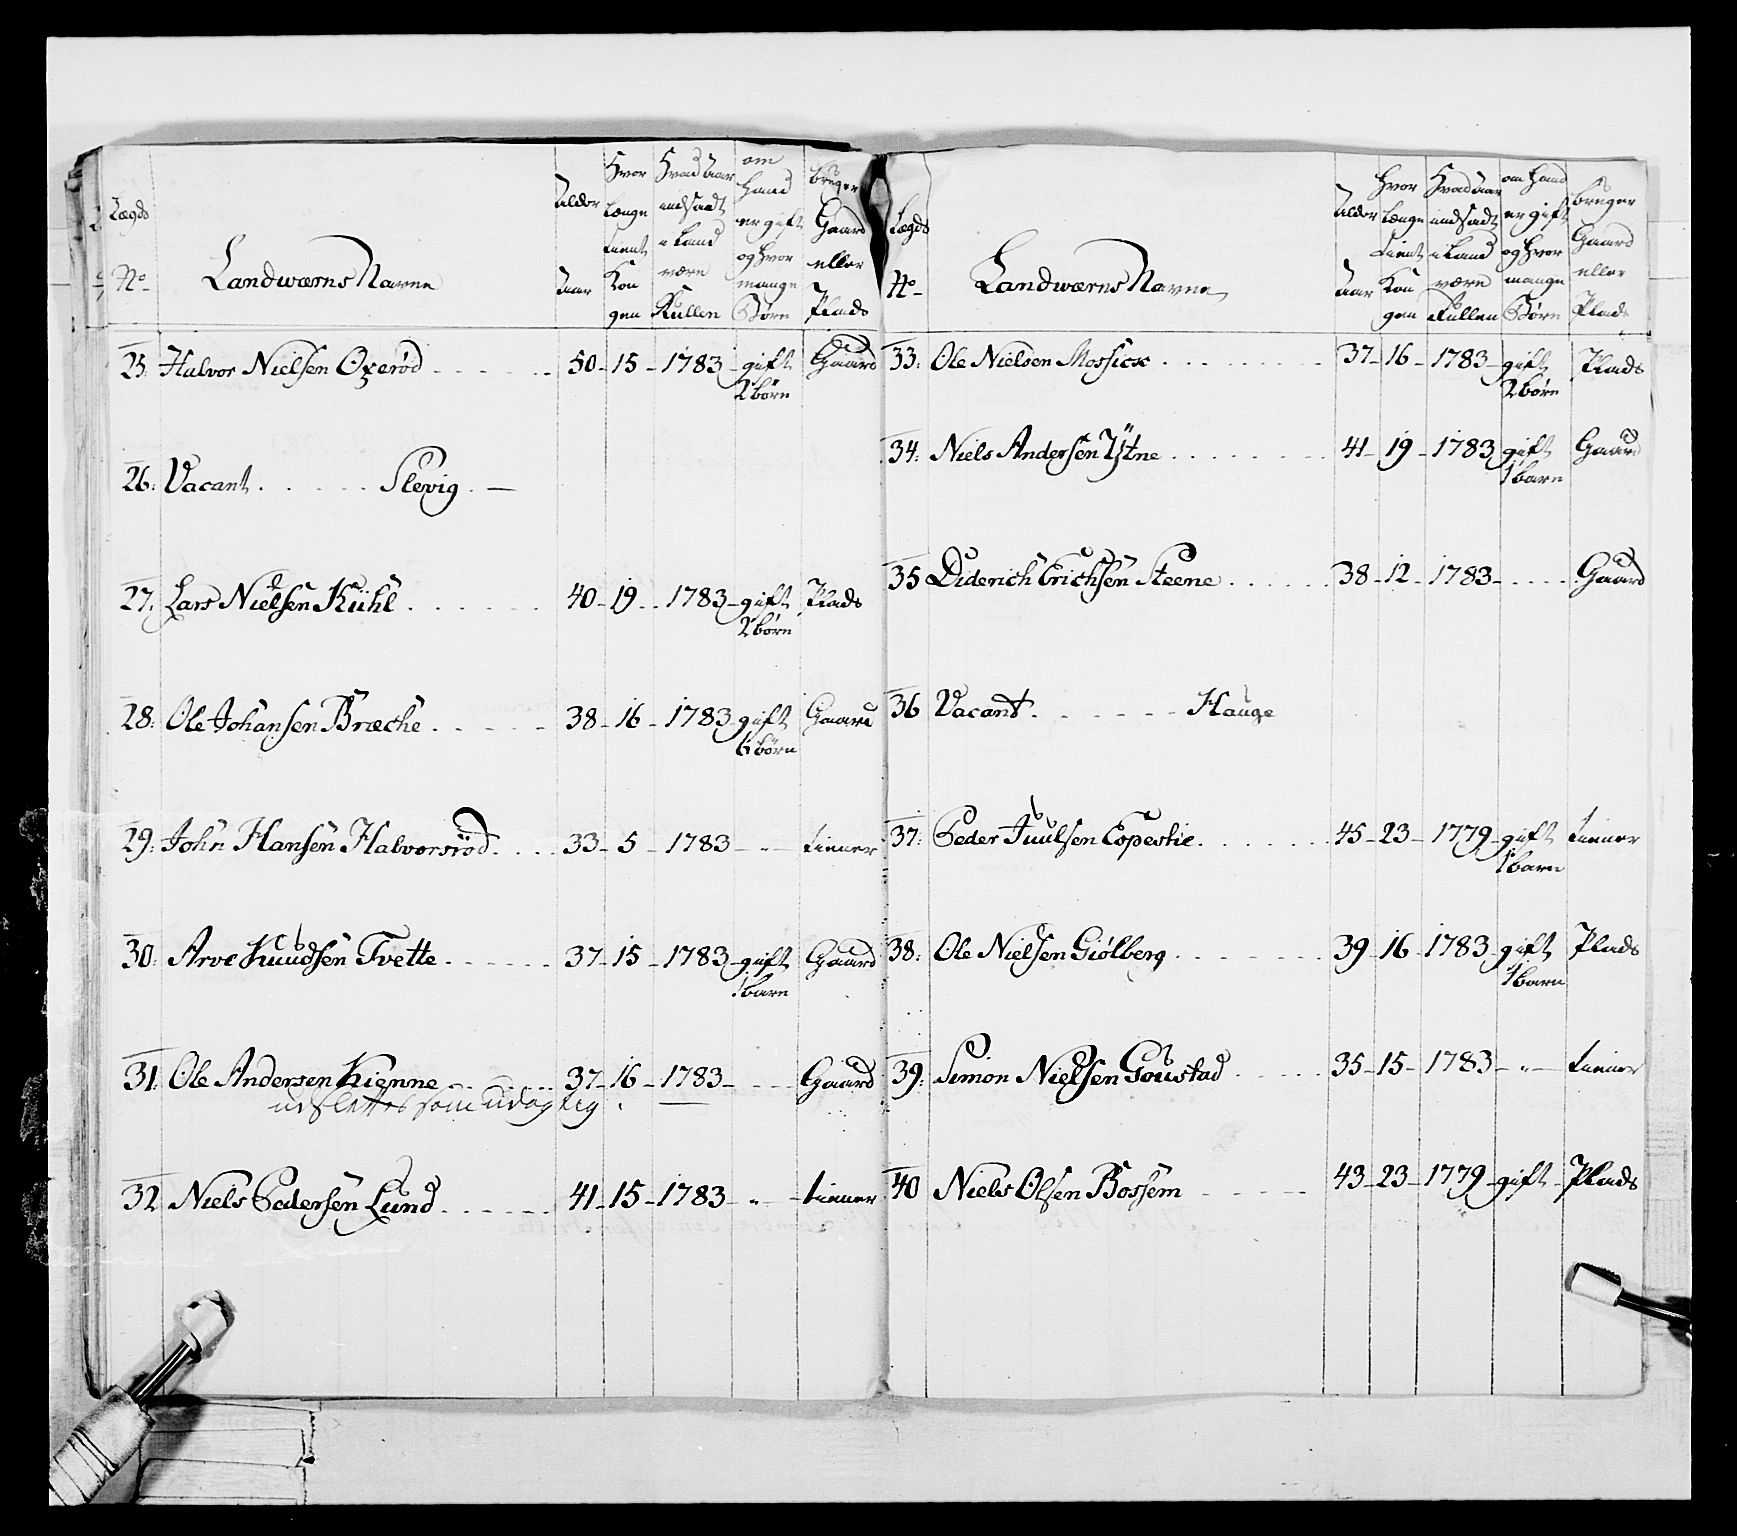 Lægds No Landwærns Navne Alder Aar Hvor Længe tient Kongen Hvad Aar indsadt i Land være Rullen om Hand er gift og Hvor mange Børn bruger Gaard eller Plads
25: Halvor Nielsen Oxerød 50 - 15 - 1783 - gift Gaard
2 børn
26: Vacant . . . . . . Slevig. —
27: Lars Nielsen Kühl 40 - 19 - 1783 - gift Plads
2 børn
28: Ole Johansen Bræche 38 - 16 - 1783 gift Gaard
6 børn
29: John Hansen Halvorsröd 33 - 5 - 1783 - „ - tiener
30: Arve Knudsen Tvette 37 - 15 - 1783 gift Gaard
1 barn
31: Ole Andersen Kienne 37 - 16 - 1783 - - - Gaard
udslettes som udøgtig
32 Niels Pedersen Lund 41 - 15 - 1783 „ - tiener
Lægds No Landwærns Navne Alder Aar Hvor Længe tient Kongen Hvad Aar indsadt i Land være Rullen om Hand er gift og Hvor mange Børn bruger Gaard eller Plads
33: Ole Nielsen Mossice 37 - 16 - 1783 - gift Plads
2 børn
34: Niels Andersen Ytne 41 - 19 - 1783 gift Gaard
1 barn
35 Diderich Erichsen Steene 38 - 12 - 1783 - . . . . Gaard
36 Vacant . . . . . . Hauge
37: Peder Juulsen Copestie 45 - 23 - 1779 - gift tiener
1 barn
38: Ole Nielsen Giølberg 39 - 16 - 1783 - gift Plads
1 barn
39: Simon Nielsen Goustad 35 - 15 - 1783 - „ - tiener
40 Niels Olsen Bossem 43 - 23 - 1779 - gift - Plads